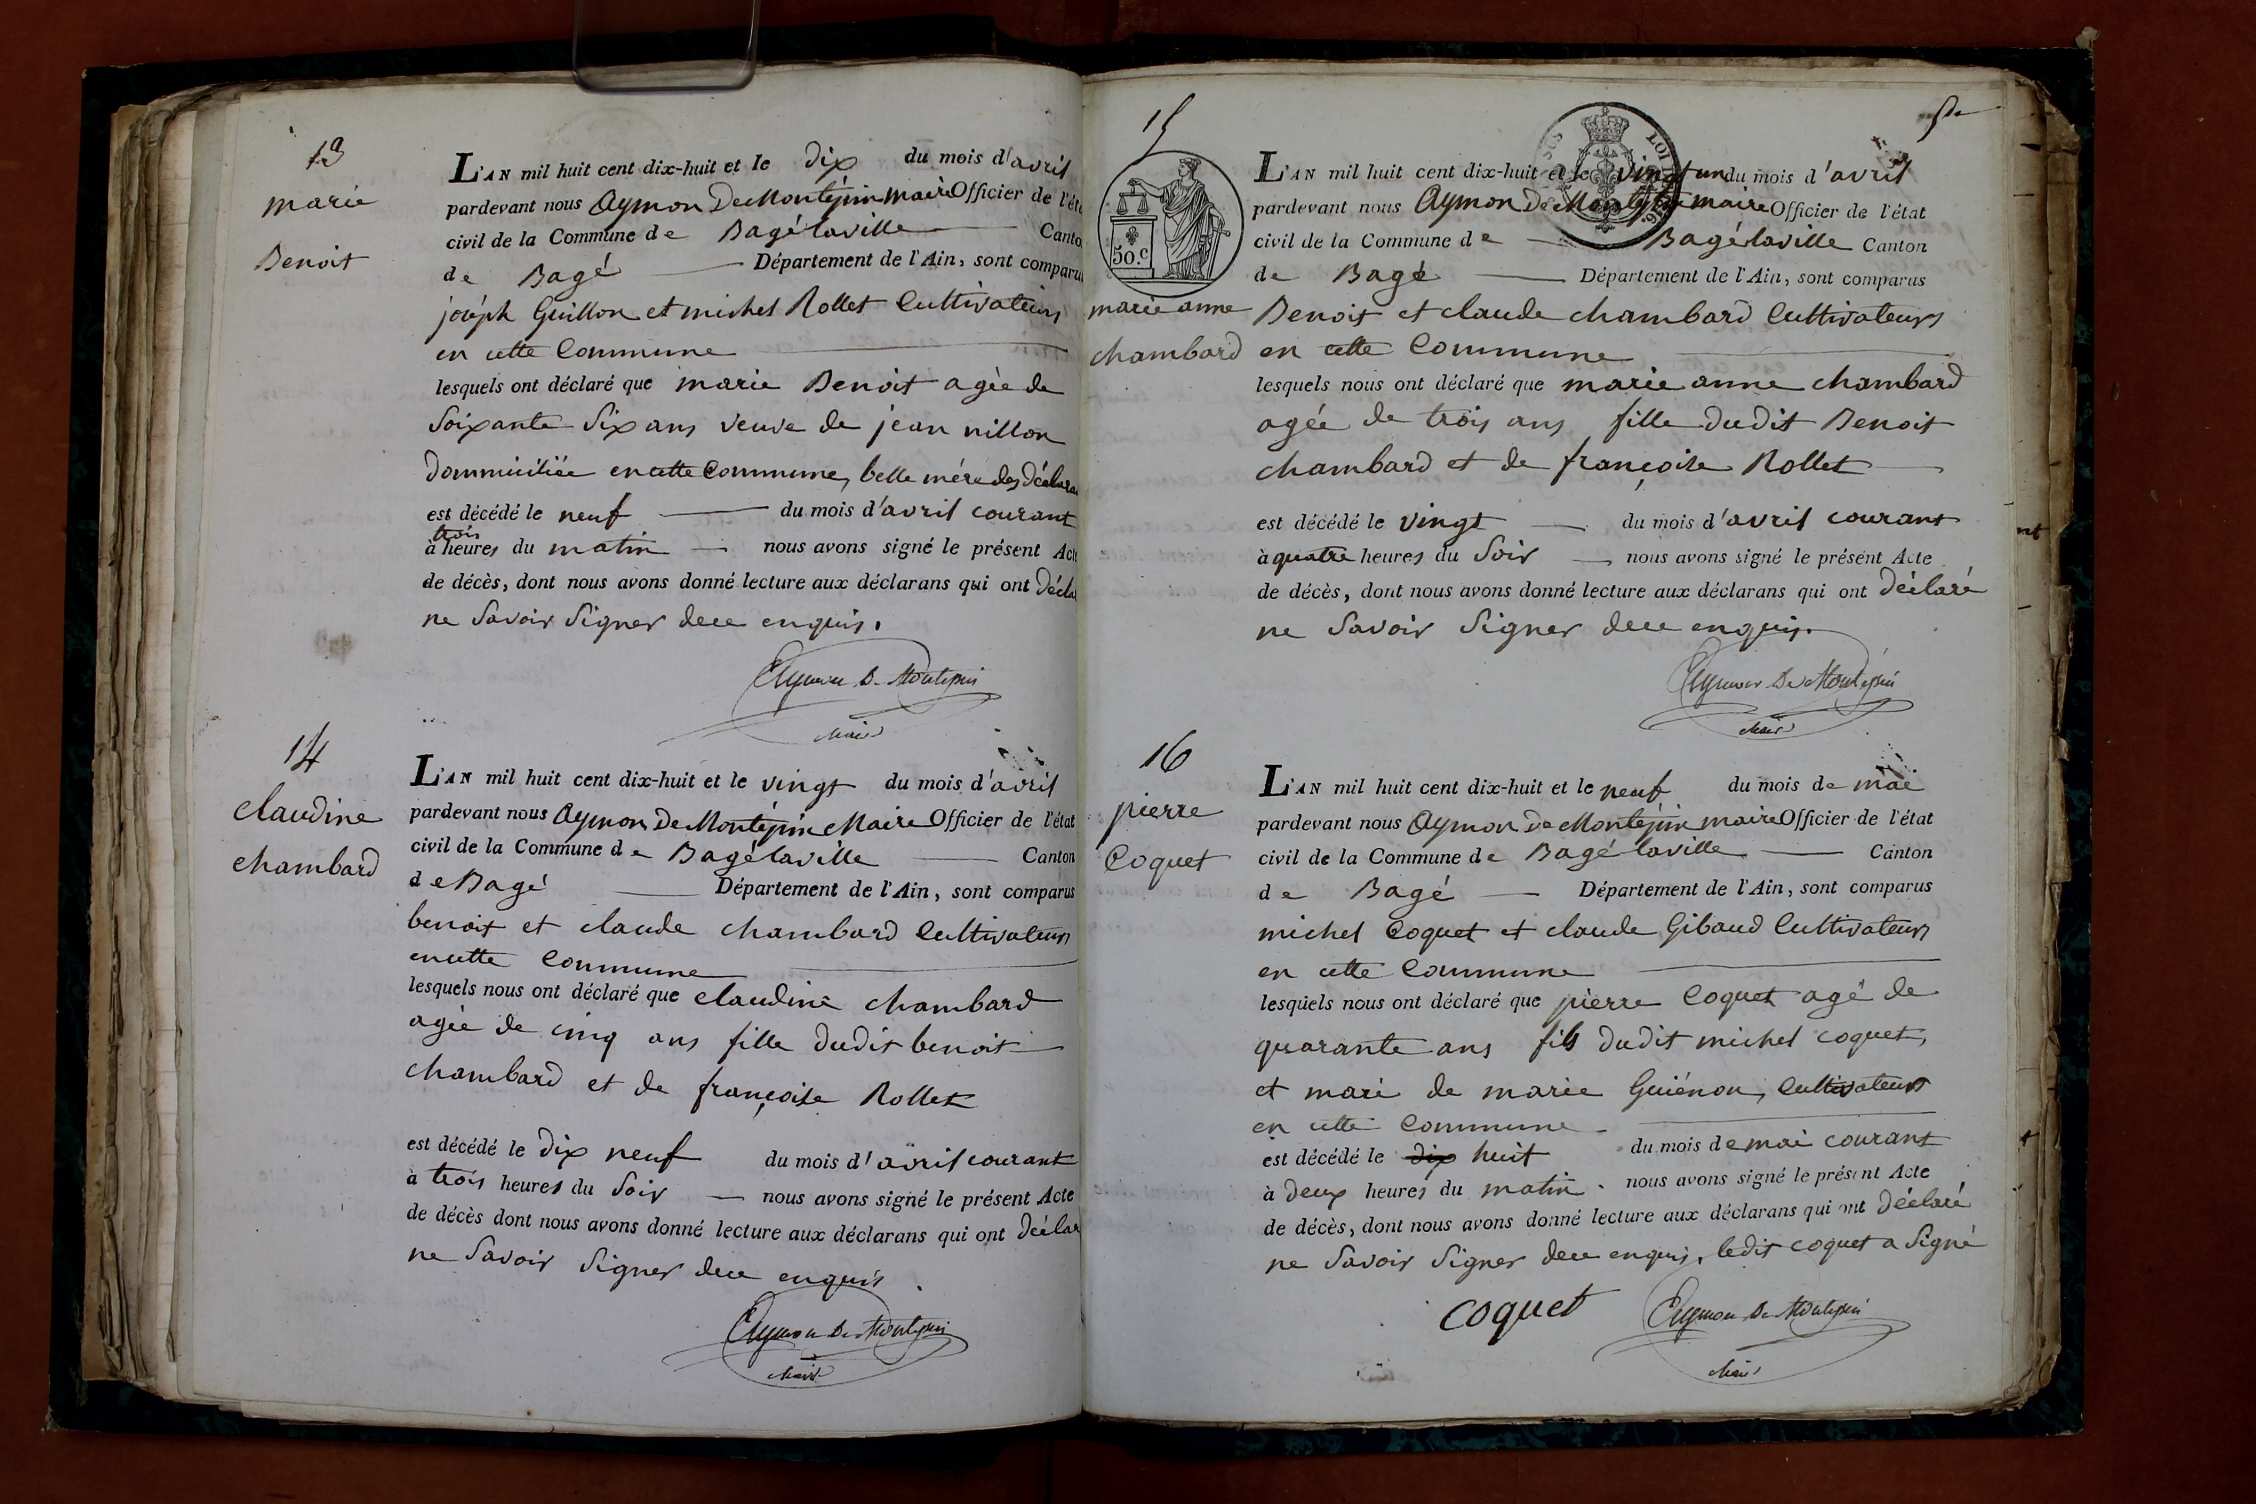 13
marie
Benoit
L'AN mil huit cent dix-huit et le dix du mois d'avril
pardevant nous Aymon De Montépin maire Officier de l'éta
civil de la Commune de Bagé laville Canto
de Bagé Département de l'Ain, sont comparus
joséph Guillon et michel Rollet Cultivateurs
en cette Commune
lesquels ont déclaré que marie Benoit agée de
Soixante Six ans veuve de jean nillon
Dommiciliée en cette Commune, belle mére des Déclara
est décédé le neuf du mois d'avril courant
à trois heures du matin nous avons signé le présent Acte
de décès, dont nous avons donné lecture aux déclarans qui ont Décla
ne Savoir Signer de ce enquis.
Aymon De Montepin
Maire
14
claudine
chambard
L'AN mil huit cent dix-huit et le vingt du mois d'avril
pardevant nous Aymon De Montépin Maire Officier de l'état
civil de la Commune de Bagé laville Canton
de Bagé Département de l'Ain, sont comparus
benoit et claude chambard Cultivateurs
en cette Commune
lesquels nous ont déclaré que claudine chambard
agée de cinq ans fille dudit benoit
chambard et de françoise Rollet
est décédé le dix neuf du mois d'avril courant
à trois heures du Soir nous avons signé le présent Acte
de décès dont nous avons donné lecture aux déclarans qui ont Déclar
ne Savoir Signer de ce enquis
Aymon De Montepin
Maire
15
50.C
marie anne
chambard
L'AN mil huit cent dix-huit et le vingt un du mois d'avril
pardevant nous Aymon De Montépin maire Officier de l'état
civil de la Commune de Bagé laville Canton
de Bagé Département de l'Ain, sont comparus
Benoit et claude chambard Cultivateurs
en cette Commune
lesquels nous ont déclaré que marie anne chambard
agée de trois ans fille dudit Benoit
chambard et de françoise Rollet
est décédé le vingt du mois d'avril courant
à quatre heures du Soir nous avons signé le présent Acte
de décès, dont nous avons donné lecture aux déclarans qui ont Déclaré
ne Savoir Signer de ce enquis.
Aymon De Montépin
Maire
16
pierre
Coquet
L'AN mil huit cent dix-huit et le neuf du mois de mai
pardevant nous Aymon De Montépin maire Officier de l'état
civil de la Commune de Bagé laville Canton
de Bagé Département de l'Ain, sont comparus
michel Coquet et claude Gibaud Cultivateurs
en cette Commune
lesquels nous ont déclaré que pierre Coquet agé de
quarante ans fils dudit michel coquet,
et mari de marie Guiénon, Cultivateurs
en cette Commune
est décédé le dix huit du mois de mai courant
à deux heures du matin. nous avons signé le présent Acte
de décès, dont nous avons donné lecture aux déclarans qui ont Déclaré
ne Savoir Signer de ce enquis, ledit coquet a Signé
coquet
Aymon De Montepin
Maire